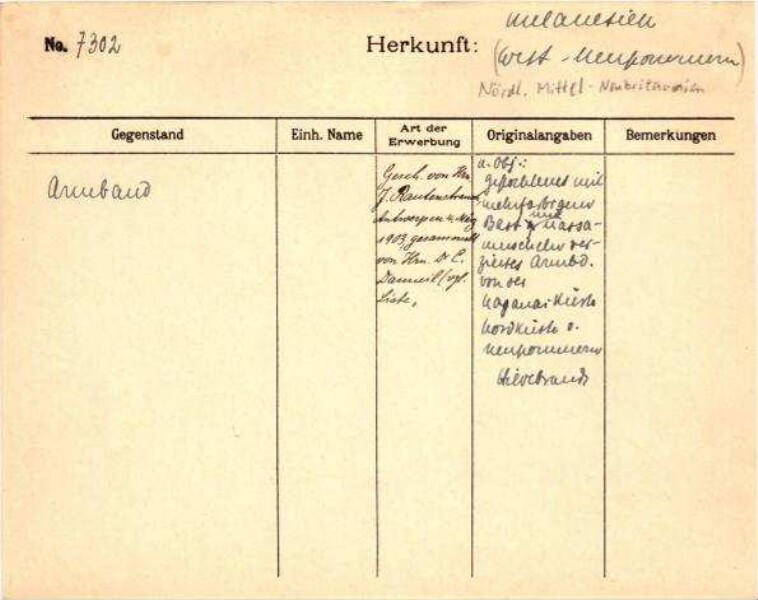 No. 7302
Herkunft: Melanesien
(West-Neupommern)
Nördl. Mittel-Neubritannien
Gegenstand
Einh. Name
Art der Erwerbung
Originalangaben
Bemerkungen
Armband
Gesch. von Hrn
J. Rautenstrauch
Antwerpen 4. März
1903, gesammelt
von Hrn. Dr C.
Danneil (vgl.
Liste,
a. Obj.:
geflochtenes mit
mehrfarbigem
Bast und Nassa-
muscheln ver-
ziertes Armbd.
von der
Küste
Nordküste v.
Neupommern
Hildebrand